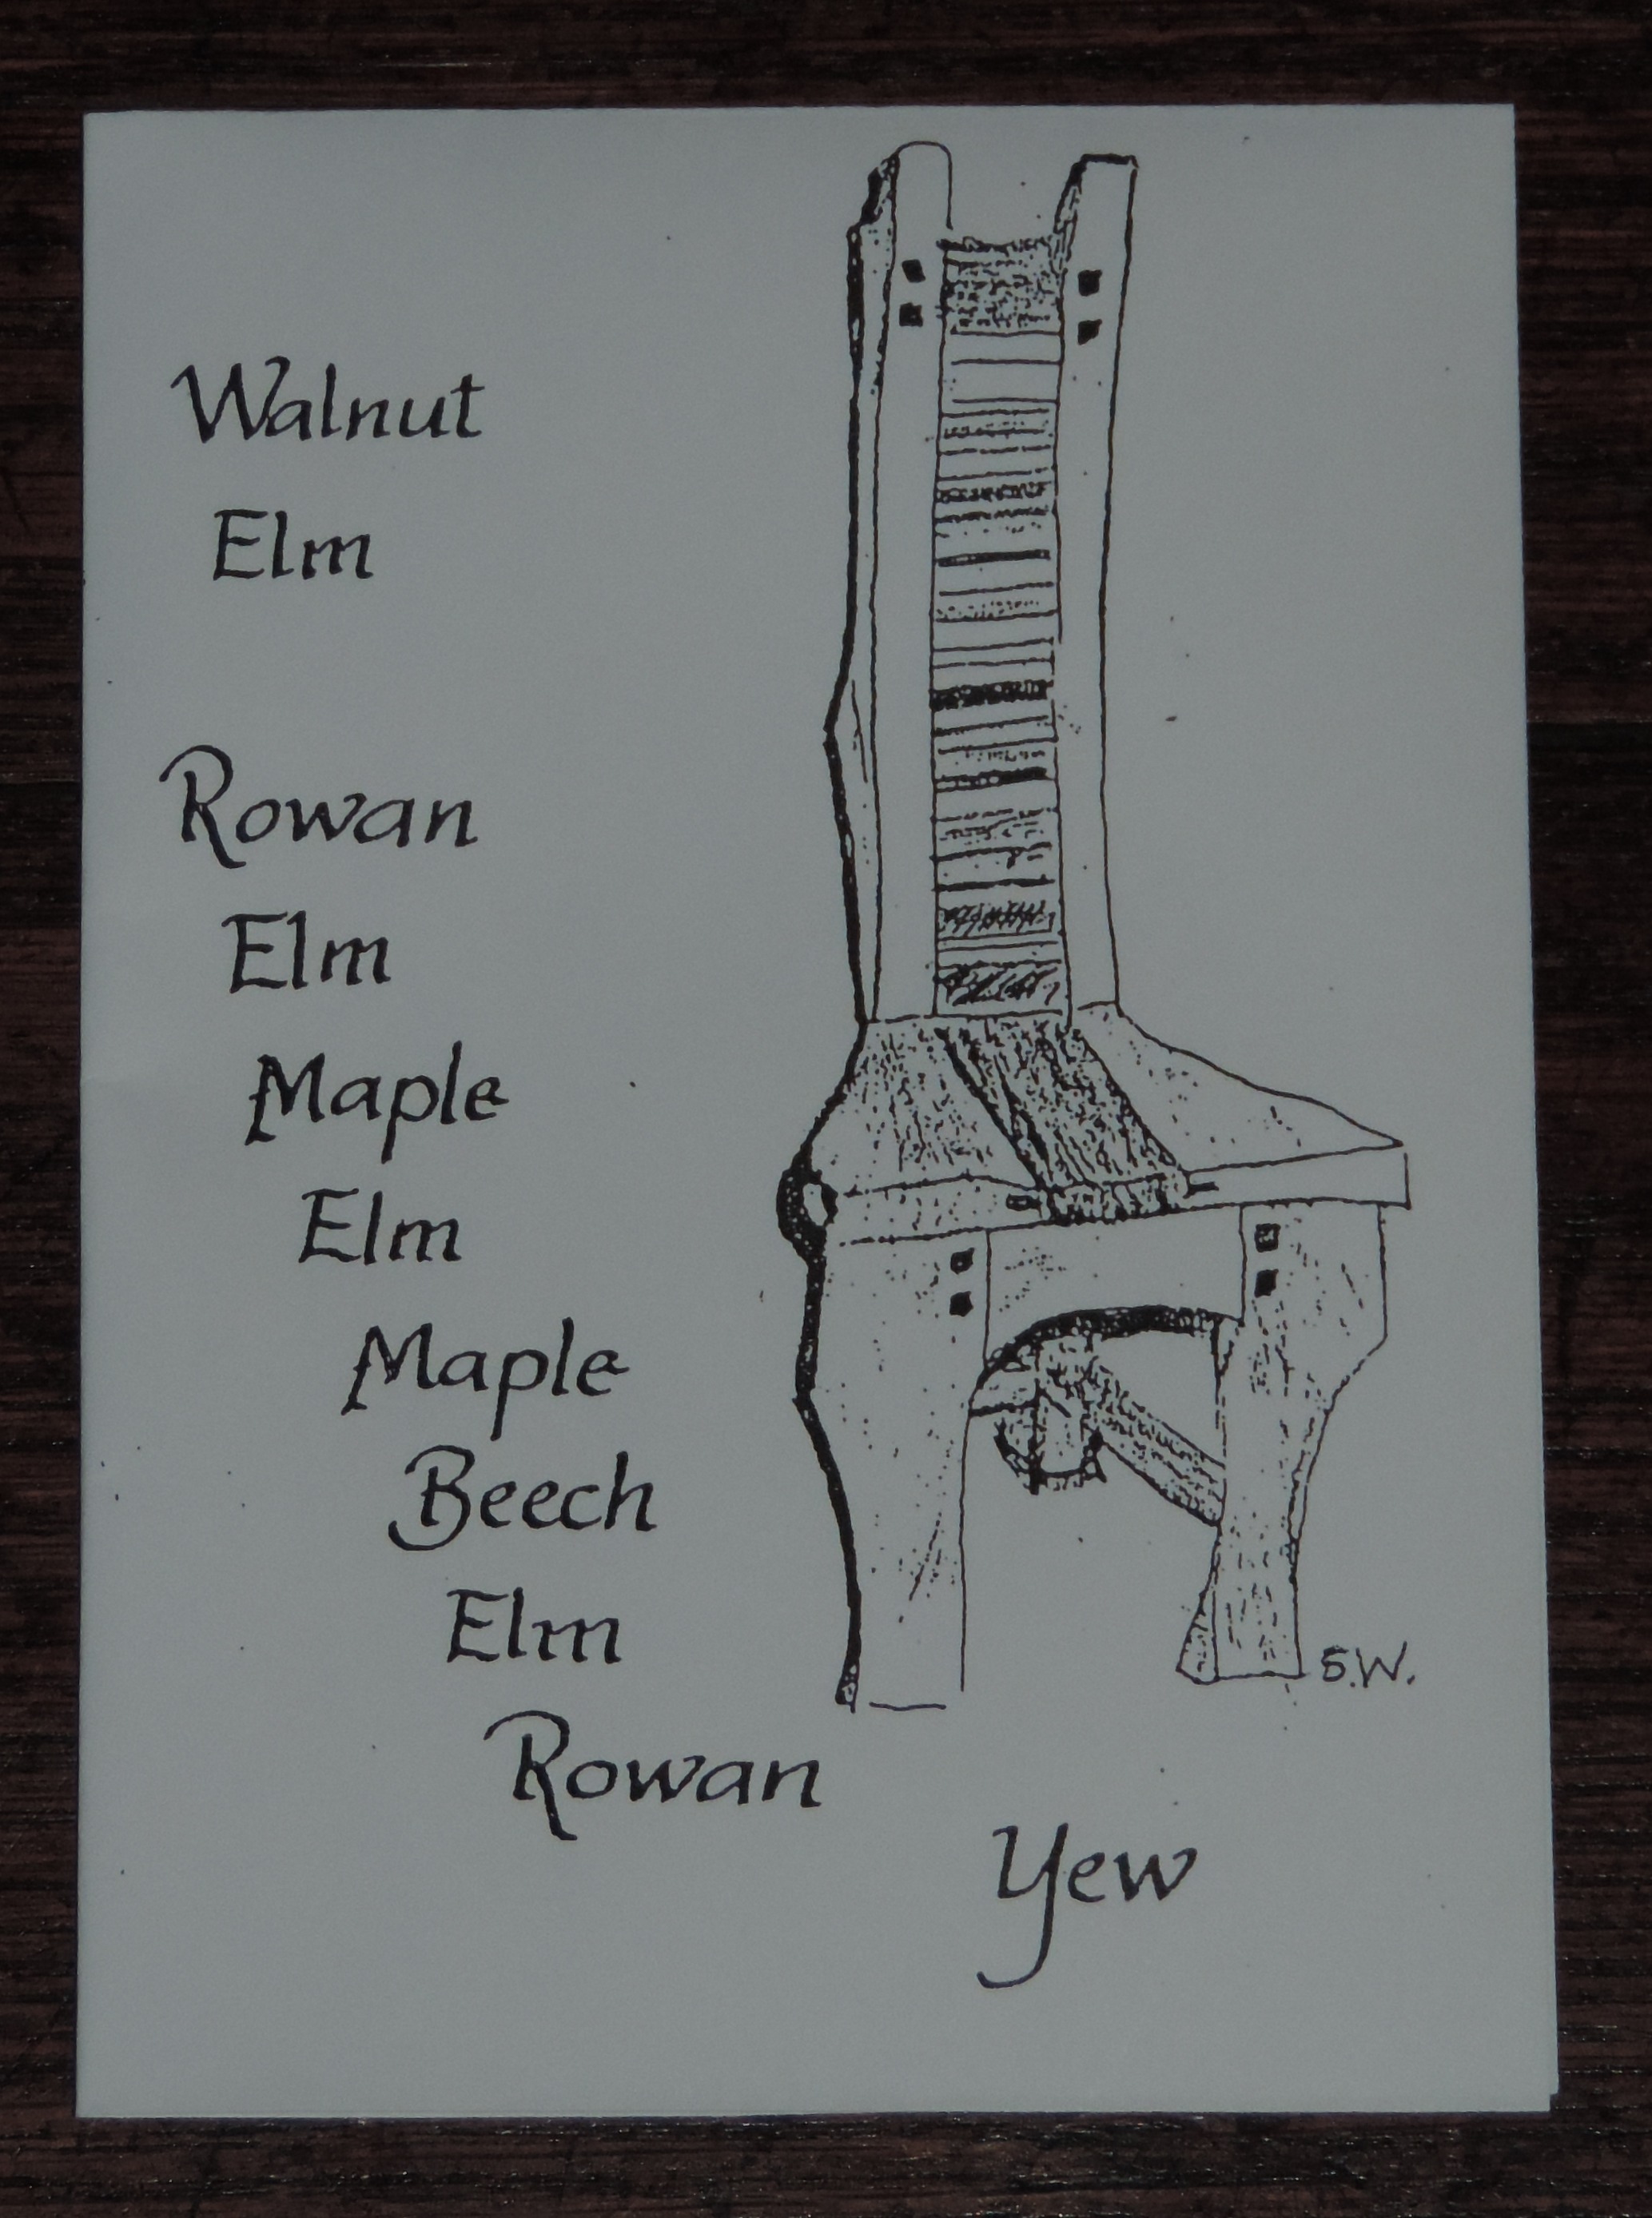 Walnut
Elm
Rowan
Elm
Maple
Elm
Maple
Beech
Elm
S.W.
Rowan
Yew